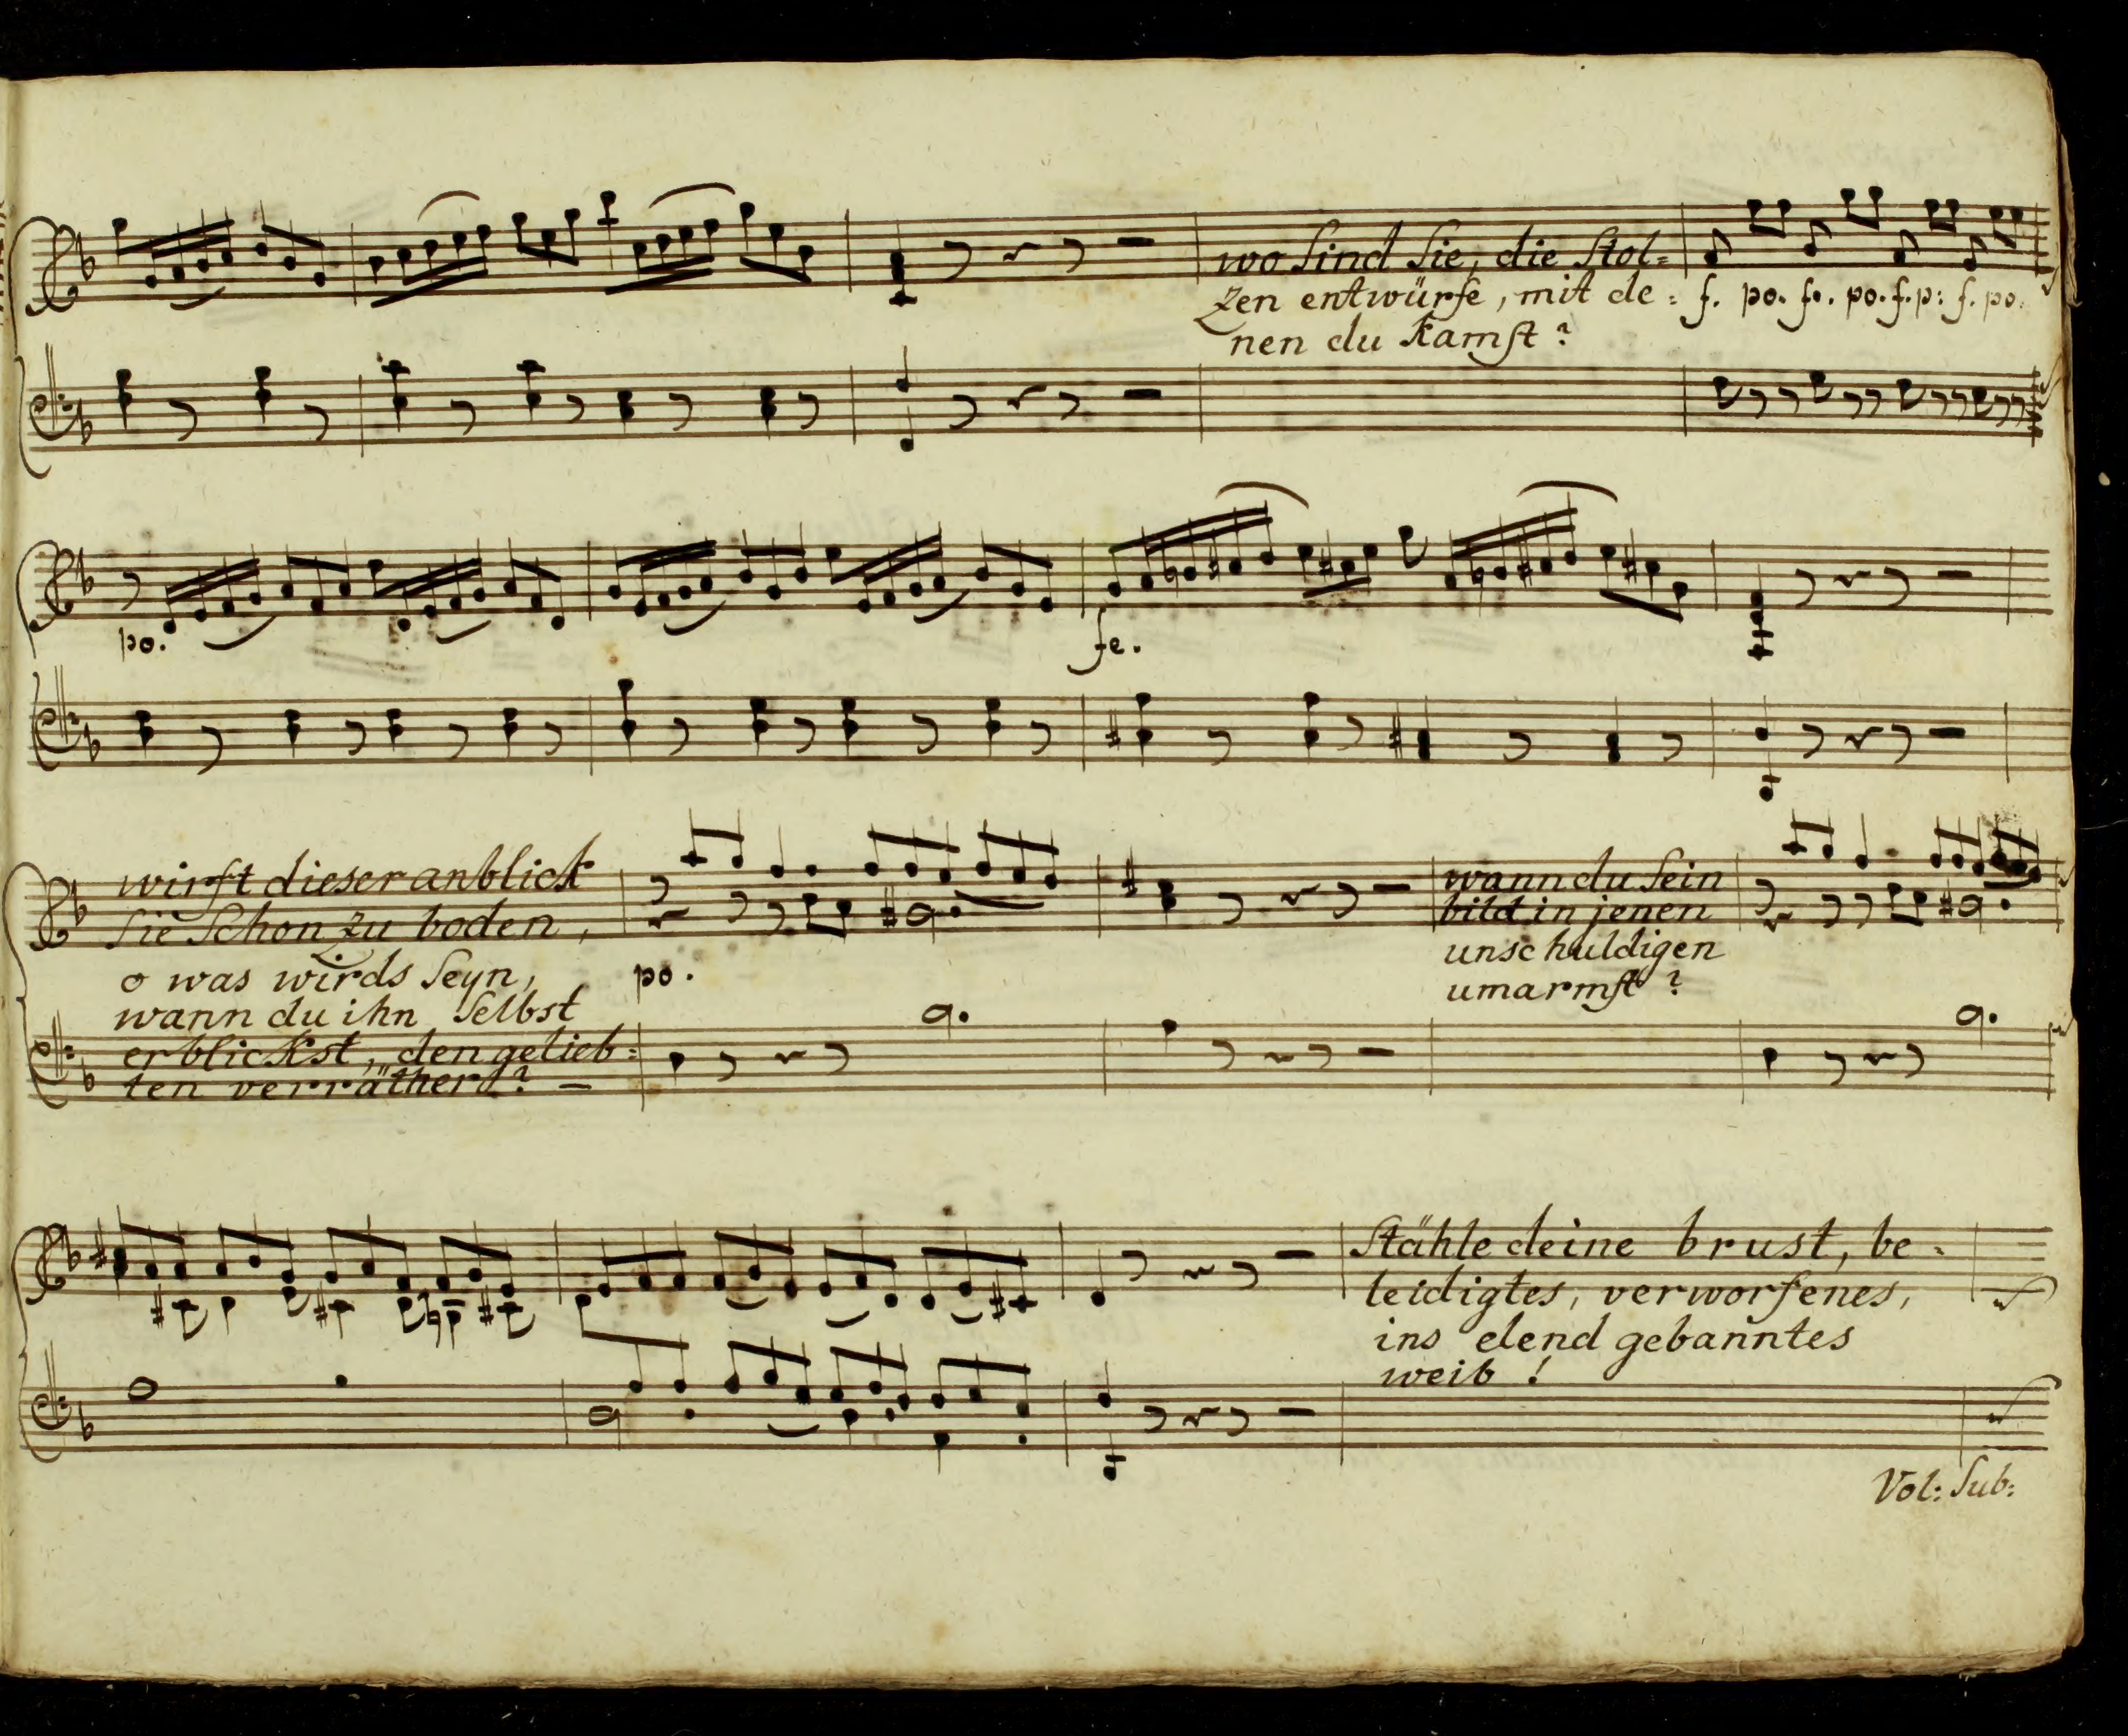 wo sind sie, die stol=
zen entwürfe, mit de=
nen du kamst?
f. po. fe. po. f. p: f. po.
po.
fe.
wirft dieser anblick
sie schon zu boden,
o was wirds seyn,
wann du ihn selbst
erblickst, den gelieb=
ten verräther? —
po.
wann du sein
bild in jenen
unschuldigen
umarmst?
Stähle deine brust, be=
leidigtes, verworfenes,
ins elend gebanntes
weib!
Vol: Sub: